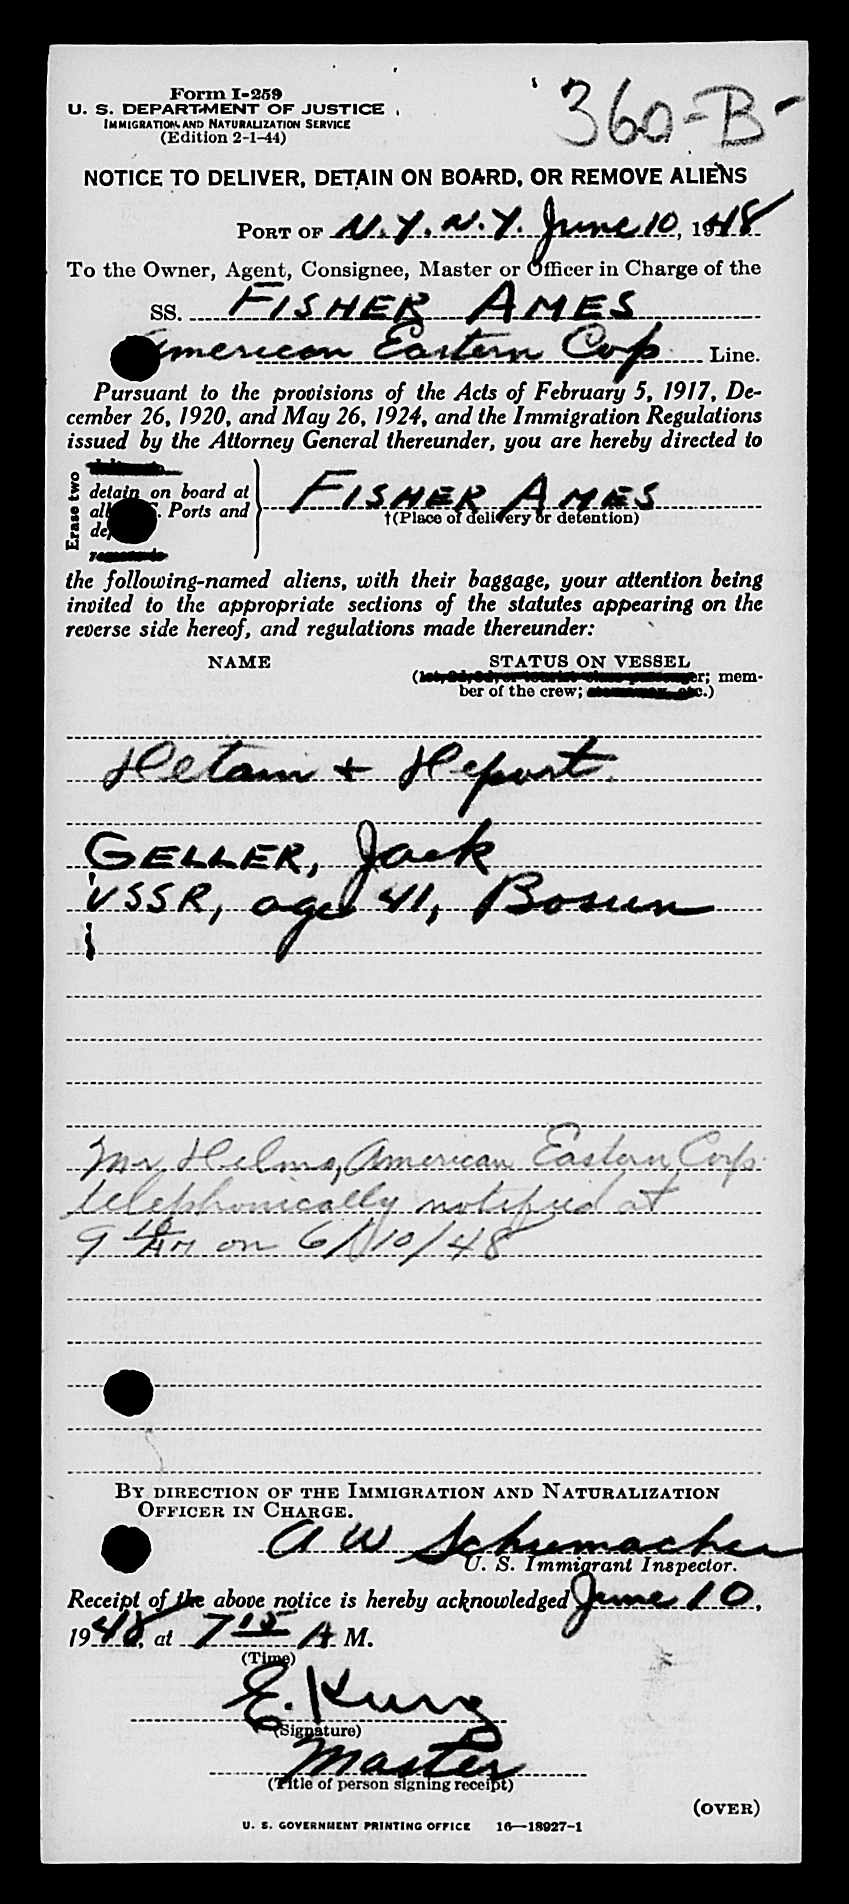 Form I-259
U. S. DEPARTMENT OF JUSTICE
IMMIGRATION AND NATURALIZATION SERVICE
(Edition 2-1-44)
360-B-
NOTICE TO DELIVER, DETAIN ON BOARD, OR REMOVE ALIENS
PORT OF N.Y. N.Y. June 10, 1948
To the Owner, Agent, Consignee, Master or Officer in Charge of the
SS. FISHER AMES
American Eastern Corp. Line.
Pursuant to the provisions of the Acts of February 5, 1917, De-
cember 26, 1920, and May 26, 1924, and the Immigration Regulations
issued by the Attorney General thereunder, you are hereby directed to
Erase two
detain on board at
all Ports and
FISHER AMES
†(Place of delivery or detention)
the following-named aliens, with their baggage, your attention being
invited to the appropriate sections of the statutes appearing on the
reverse side hereof, and regulations made thereunder:
NAME
STATUS ON VESSEL
mem-
ber of the crew;
Detain + Deport.
GELLER, Jack
USSR, age 41, Bosun
Mr. Helms, American Eastern Corp.
telephonically notified at
9 10 AM on 6/10/48
BY DIRECTION OF THE IMMIGRATION AND NATURALIZATION
OFFICER IN CHARGE.
A W Schumacher
U. S. Immigrant Inspector.
Receipt of the above notice is hereby acknowledged June 10,
1948, at 7 15 A M.
(Time)
E. Kurz
(Signature)
Master
(Title of person signing receipt)
(OVER)
U. S. GOVERNMENT PRINTING OFFICE 16—18927-1